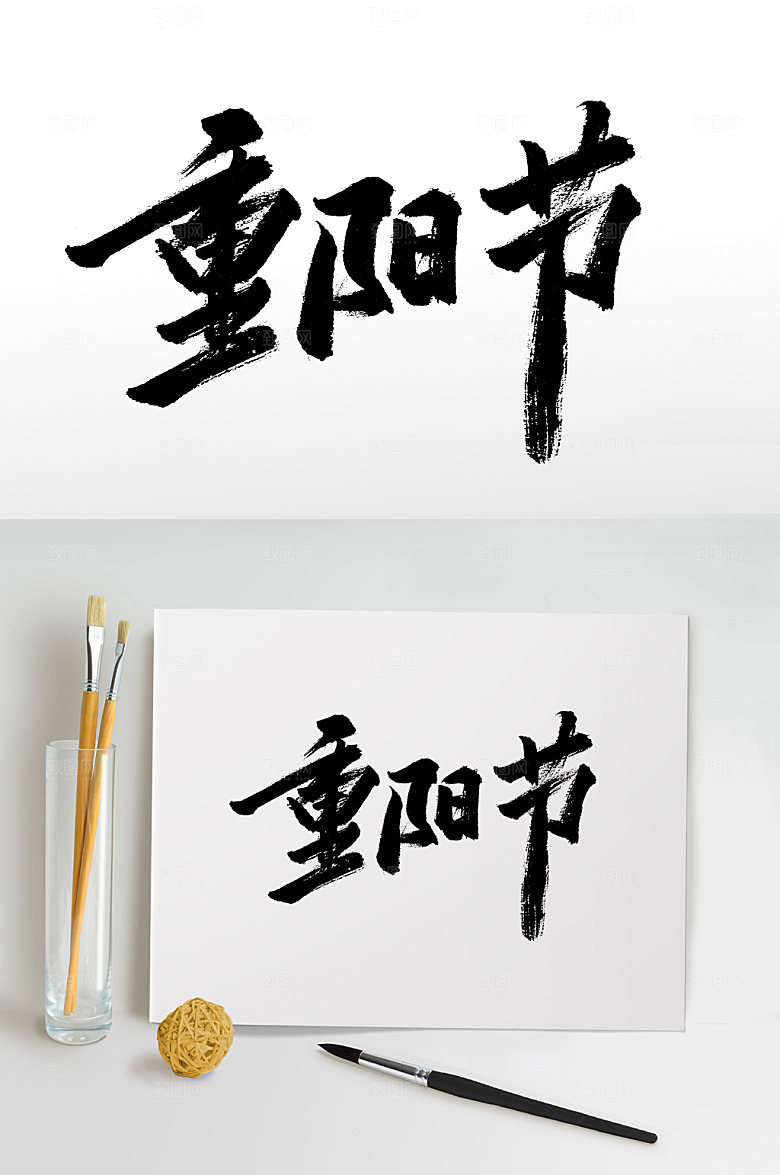 重阳节
重阳节